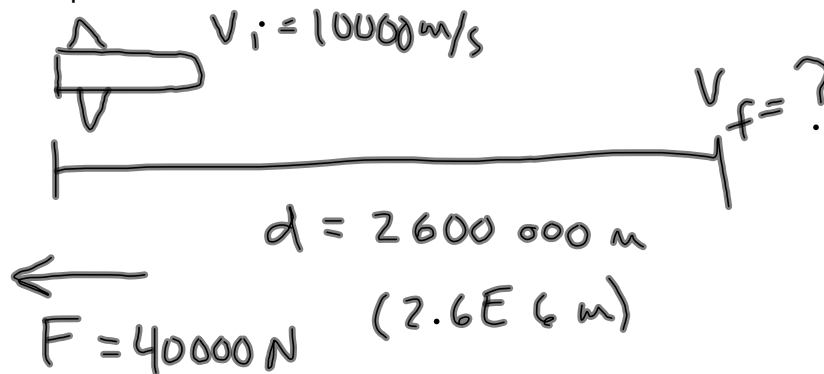 Vi = 10000 m/s
Vf = ?
d = 2600 000 m
(2.6E6 m)
F = 40000 N